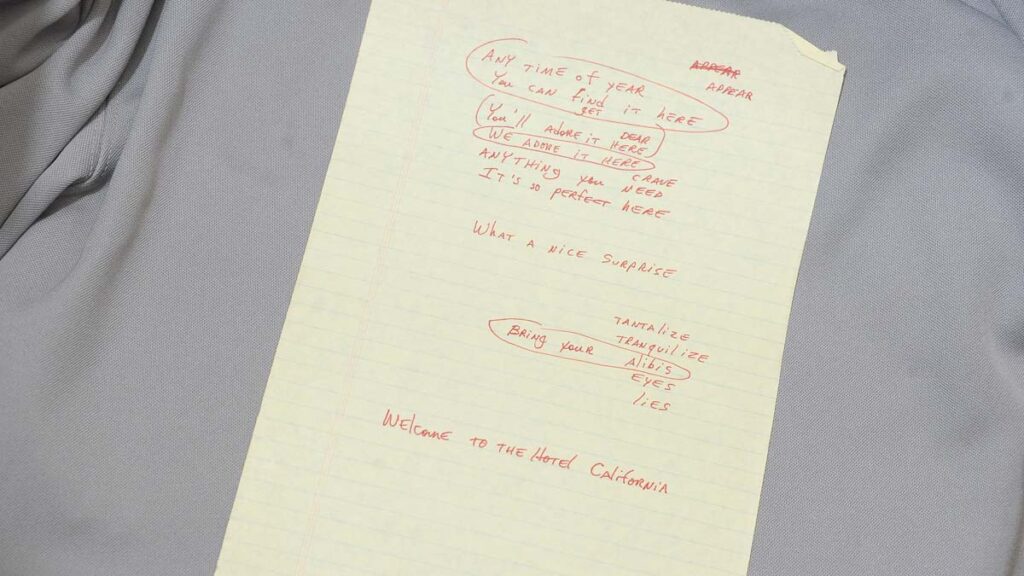 APPEAR
ANY TIME of YEAR APPEAR
You CAN find iT HERE
GET
You'll ADORE iT DEAR
HERE
WE ADORE iT HERE
ANYTHING You CRAVE
NEED
IT'S SO PERFECT HERE
WHAT A NICE SURPRISE
TANTALIZE
TRANQUILIZE
BRING YOUR Alibis
EYES
liES
WElcomE TO THE HotEl CAliforNiA